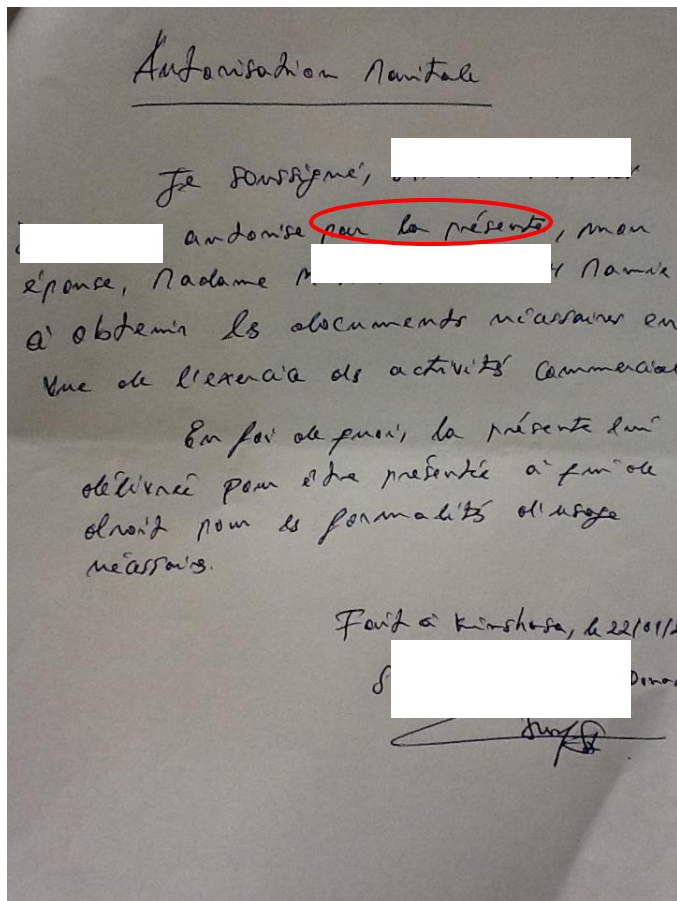 Autorisation Maritale
Je soussigné,
autorise par la présente, mon
épouse, Madame Mamie
à obtenir les documents nécessaires en
vue de l'exercice des activités commercial
En foi de quoi, la présente lui
délivrée pour être présentée à fin de
droit pour les formalités d'usage
nécessaires.
Fait à Kinshasa, le 22/01/2